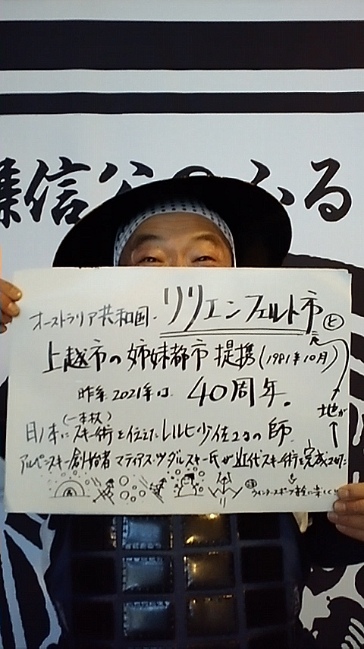 謙信公のふる
オーストラリア共和国・リリエンフェルト市と
上越市の姉妹都市提携(1981年10月)
昨年2021年は 40周年。
日本に(一本杖)スキー術を伝えたレルヒ少佐の師
アルペンスキー創始者マティアス・ツダルスキー氏が近代スキー術を完成させた
地が